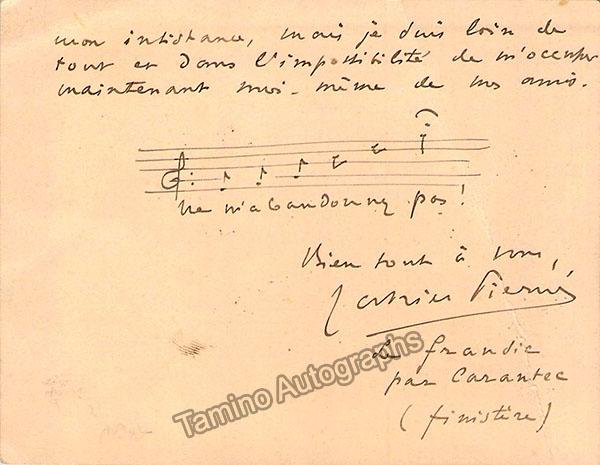 mon insistance, mais je suis loin de
tout et dans l'impossibilité de m'occuper
maintenant moi-même de mes amis.
Ne m'abandonnez pas !
Bien tout à vous,
Gabriel Pierné
Le Grandic
par Carantec
(Finistère)
Tamino Autographs